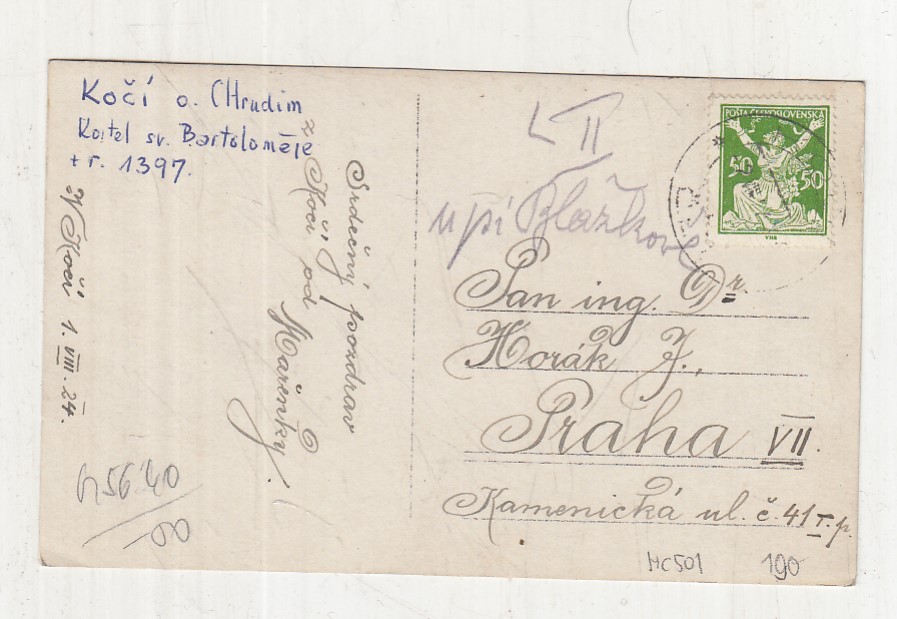 Kočí o. CHrudim
Kostel sv. Bartoloměje
+ r. 1397.
V Kočí 1. VIII. 24.
Srdečný pozdrav
z Kočí od
Mařenky!
II
u pí Blažkové
POŠTA ČESKOSLOVENSKÁ
50 50
Pan ing. Dr.
Horák J.,
Praha VII.
Kamenická ul. č. 41 I. p.
HC501 190